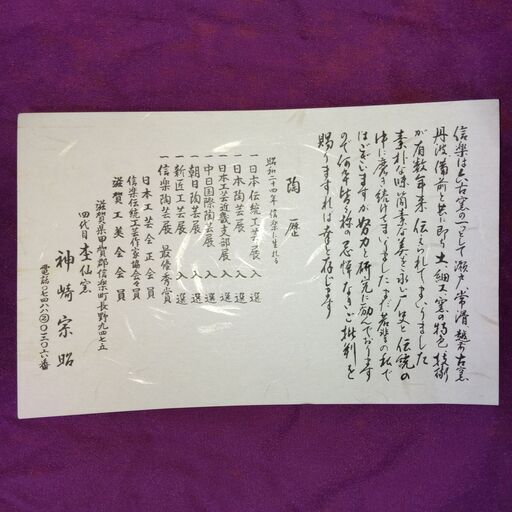 信楽は六古窯の一つとして瀬戸常滑越前古窯
丹波備前と共に即ち土細工窯の特色技術
が有数年来伝えられてまいりました
素朴な味簡素な美を永い歴史と伝統の
中に磨き続けてまいりましたまだ若輩の私で
はございますが努力と研究に励んでおります
ので何卒皆々様の忌憚なきご批判を
賜りますれば幸と存じます
陶歴
昭和二十四年信楽に生れる
一日本伝統工芸展入選
一日本陶芸展入選
一日本工芸会近畿支部展入選
一中日国際陶芸展入選
一朝日陶芸展入選
一新匠工芸展入選
一信楽陶芸展最優秀賞
日本工芸会正会員
信楽伝統工芸作家協会々員
滋賀工美会会員
滋賀県甲賀郡信楽町長野九四七五
四代目李仙窯
神崎宗昭
電話〇七四八八②〇三〇六番